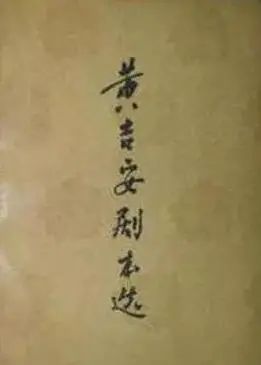 黄吉安剧本选